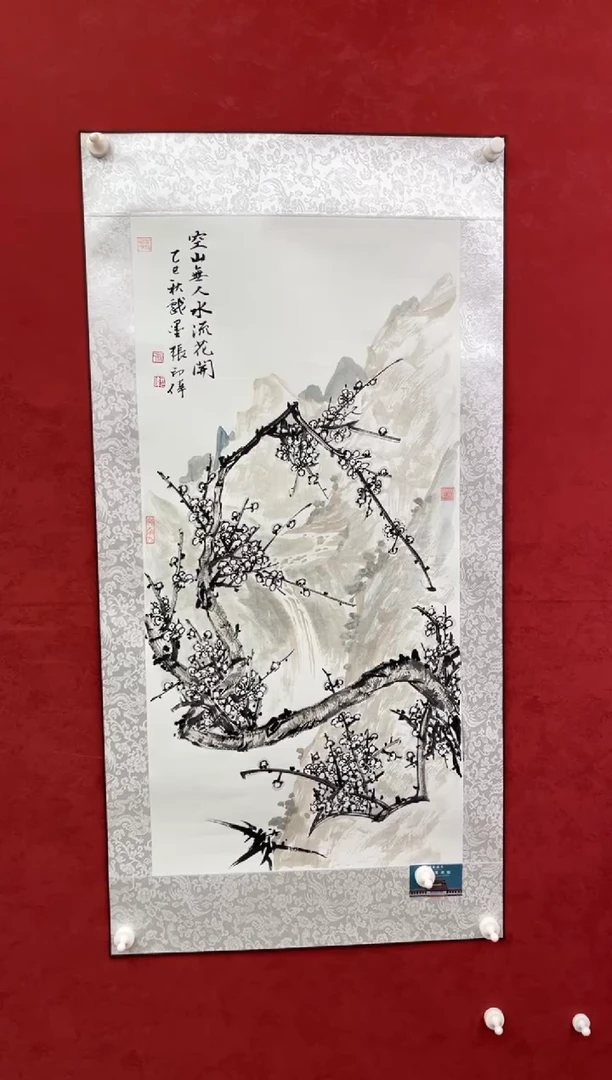 空山無人水流花開
乙巳秋戲墨張印偉